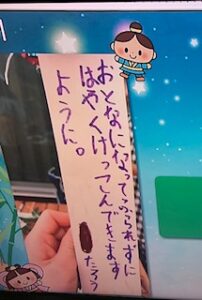 おとなになってふられずに
はやくけっこんできます
ように。
たろう